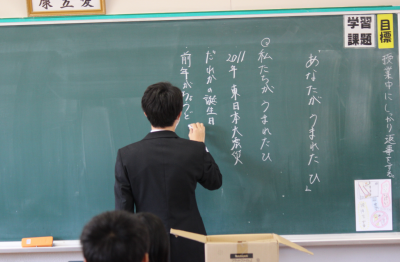 学習課題
目標
授業中にしっかり返事をする。
「あなたが うまれた ひ」
◎私たちが うまれたひ
2011年 東日本大震災
だれかの誕生日
前年がちょうど